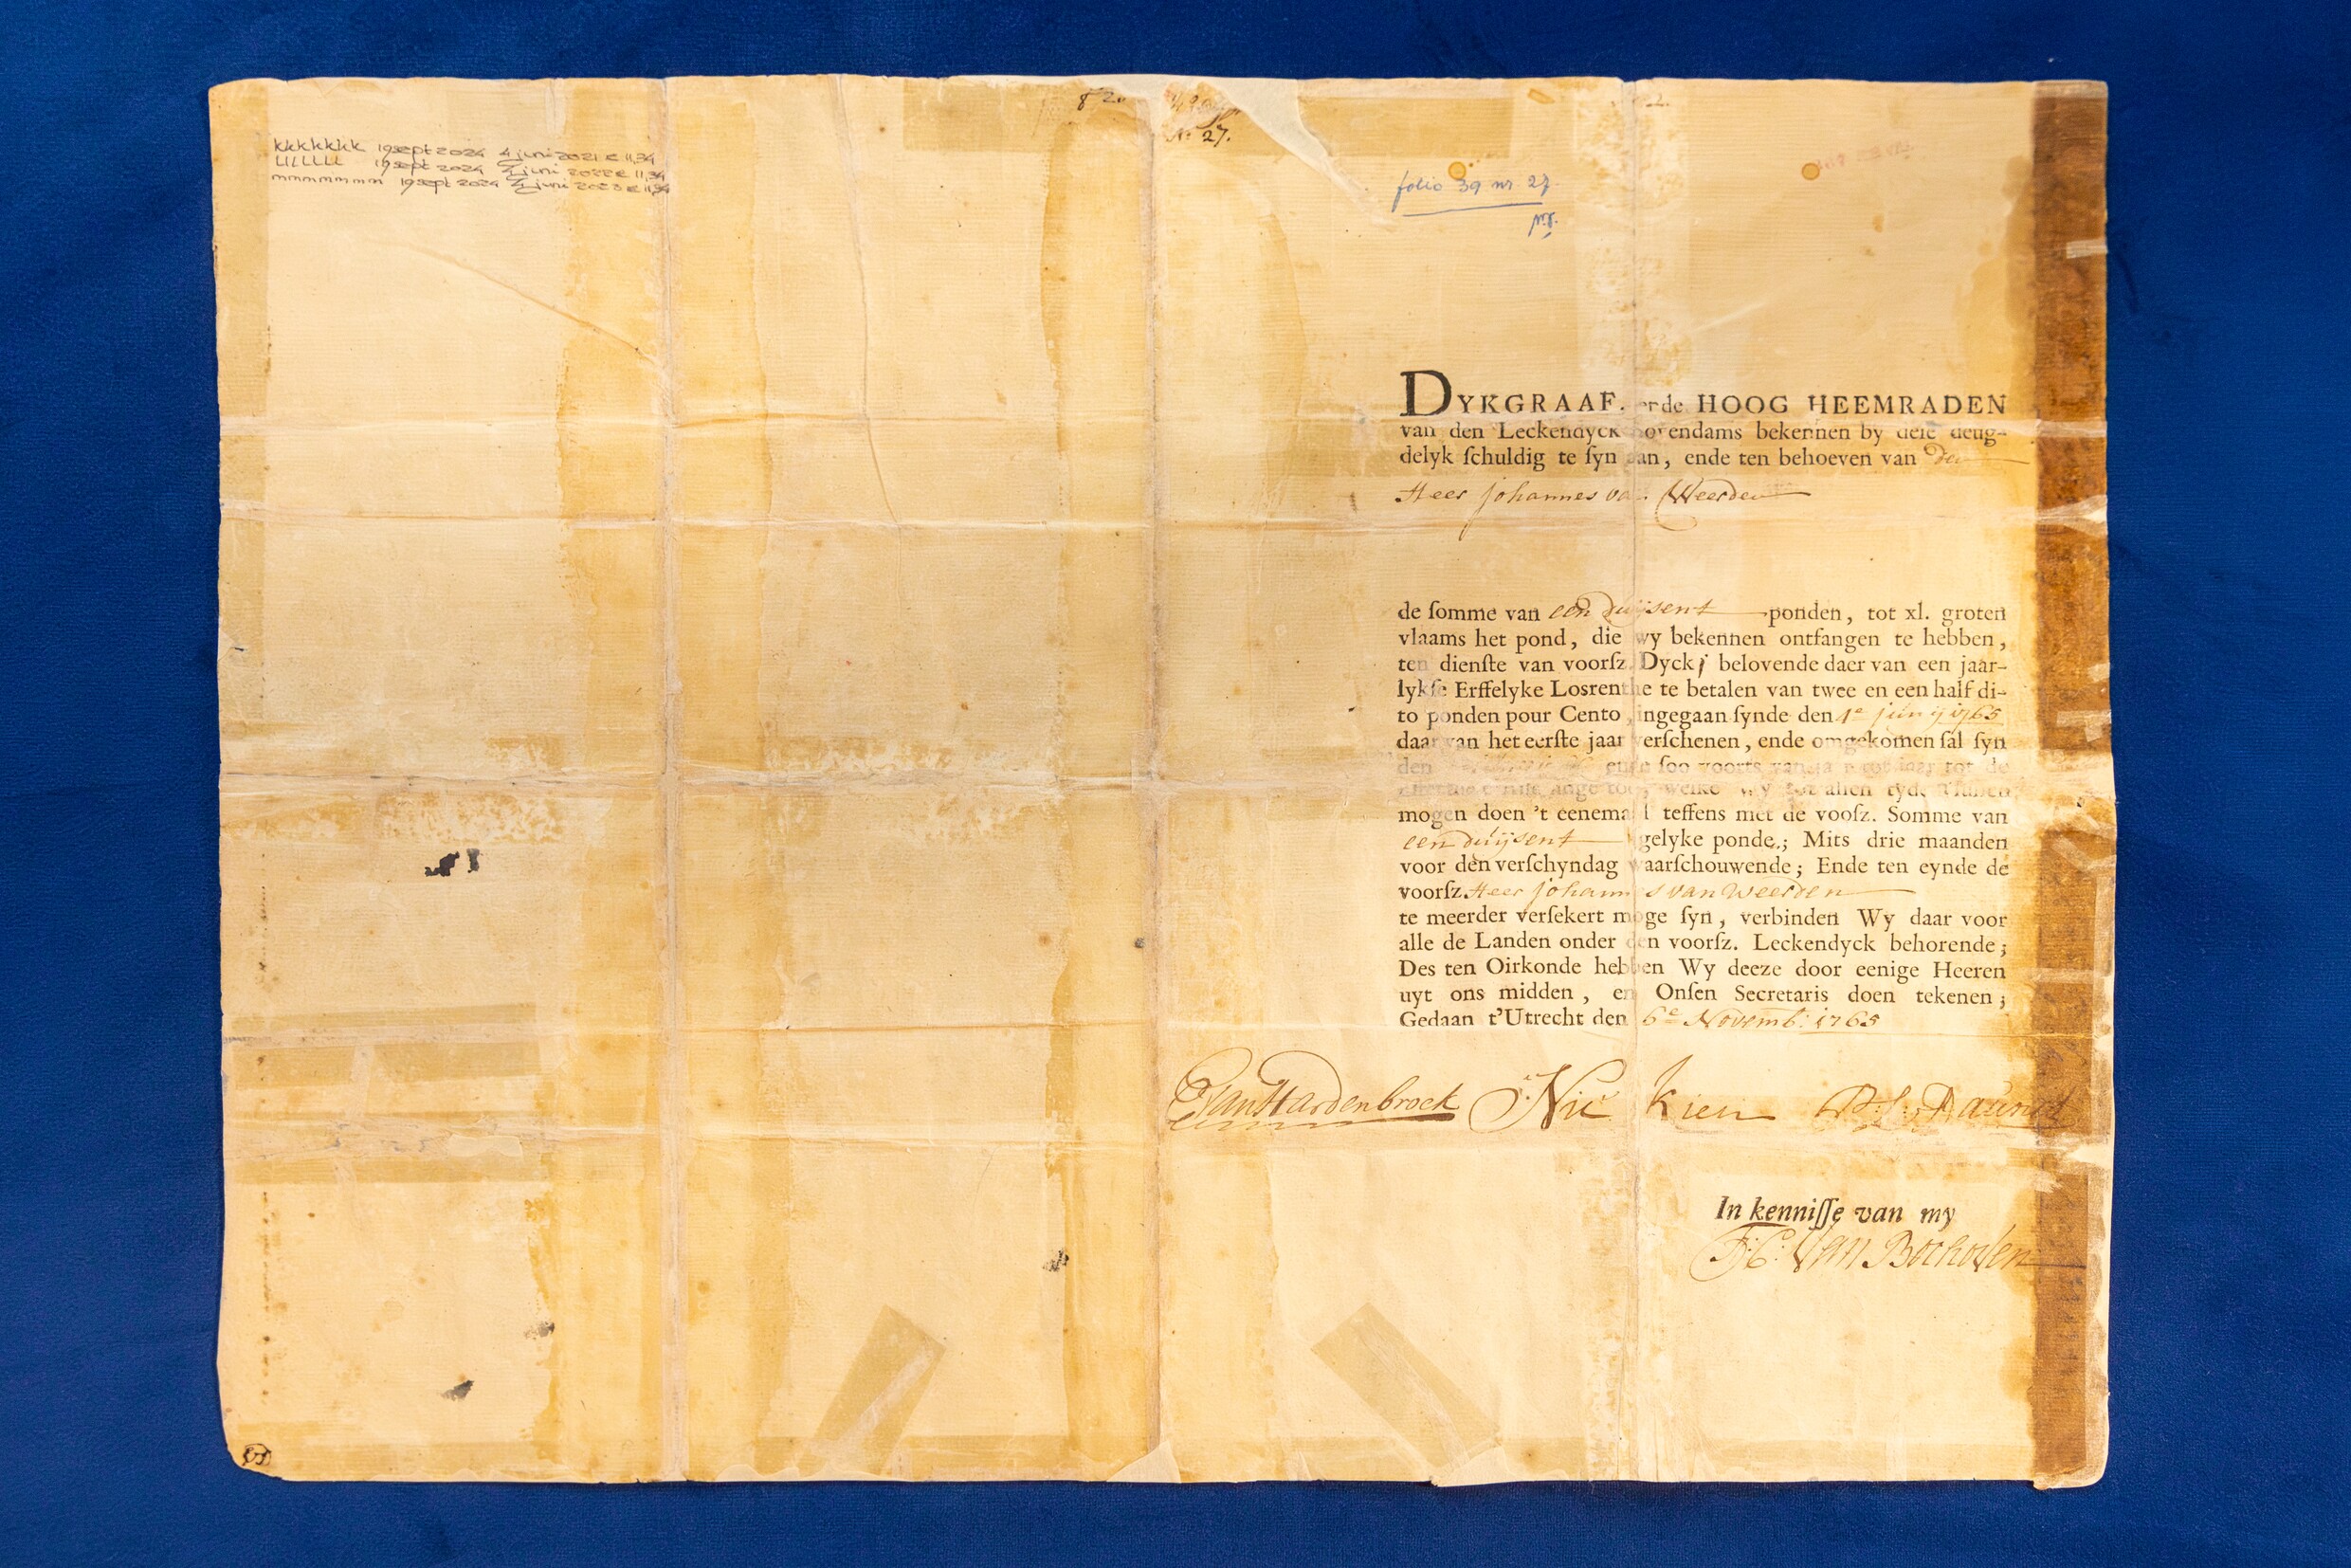 kkkkkkk 19 sept 2024 4 juni 2021 € 11,34
LLLLLLL 19 sept 2024 4 juni 2022 € 11,34
mmmmmmm 19 sept 2024 4 juni 2023 € 11,34
No 27.
folio 39 nr 27.
DYKGRAAF, ende HOOG HEEMRADEN
van den Leckendyck Bovendams bekennen by deſe deug-
delyk ſchuldig te ſyn aan, ende ten behoeven van den
Heer Johannes van Weerden
de ſomme van een duijsent ponden, tot xl. groten
vlaams het pond, die wy bekennen ontfangen te hebben,
ten dienſte van voorſz. Dyck, belovende daer van een jaar-
lykſe Erffelyke Losrenthe te betalen van twee en een half di-
to ponden pour Cento, ingegaan ſynde den 4e junij 1765
daar van het eerſte jaar verſchenen, ende omgekomen ſal ſyn
den ende ſoo voorts van jaar tot jaar tot de
toe, welke wy tot allen tyde ſullen
mogen doen 't eenemaal teffens met de vooſz. Somme van
een duijsent gelyke ponde.; Mits drie maanden
voor den verſchyndag waarſchouwende; Ende ten eynde de
voorſz. Heer Johannes van Weerden
te meerder verſekert moge ſyn, verbinden Wy daar voor
alle de Landen onder den voorſz. Leckendyck behorende;
Des ten Oirkonde hebben Wy deeze door eenige Heeren
uyt ons midden, en Onſen Secretaris doen tekenen;
Gedaan t'Utrecht den 6e Novemb: 1765
Van Hardenbroek Nic Kien
In kenniſſe van my
Van Bochoven